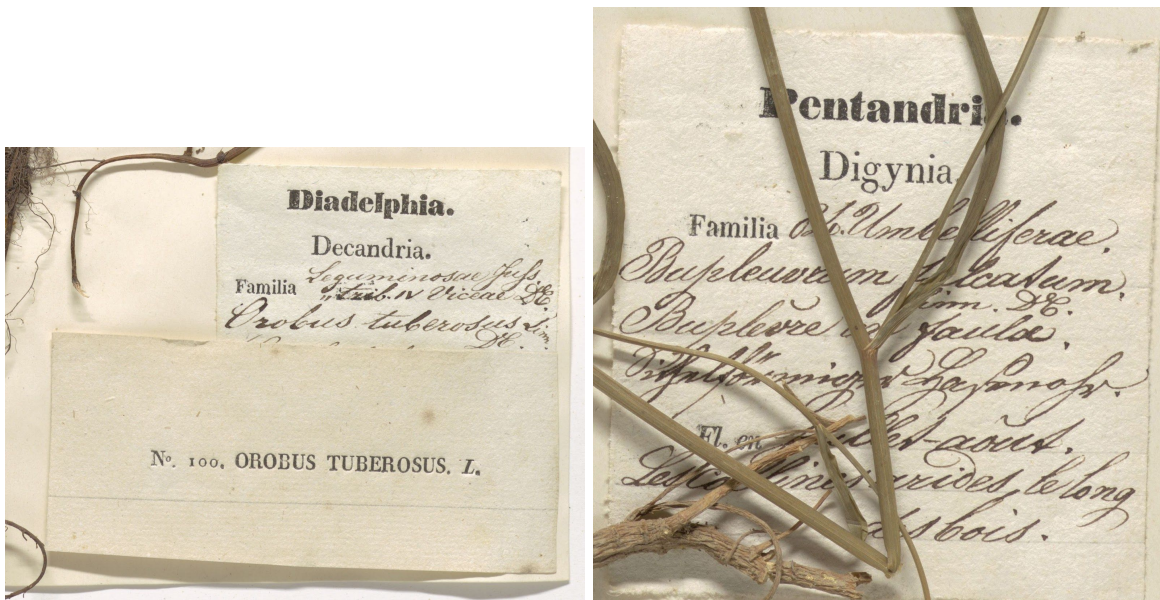 Diadelphia.
Decandria.
Familia Leguminosae Juss.
Trib. IV Viceae DC
Orobus tuberosus Linn.
DC.
No. 100. OROBUS TUBEROSUS. L.
Pentandria.
Digynia.
Familia Umbelliferae.
Bupleurum falcatum.
Linn. DC.
Buplevre en faulx.
Hasenohr.
Fl. en juillet-août.
Les collines arides, le long
des bois.